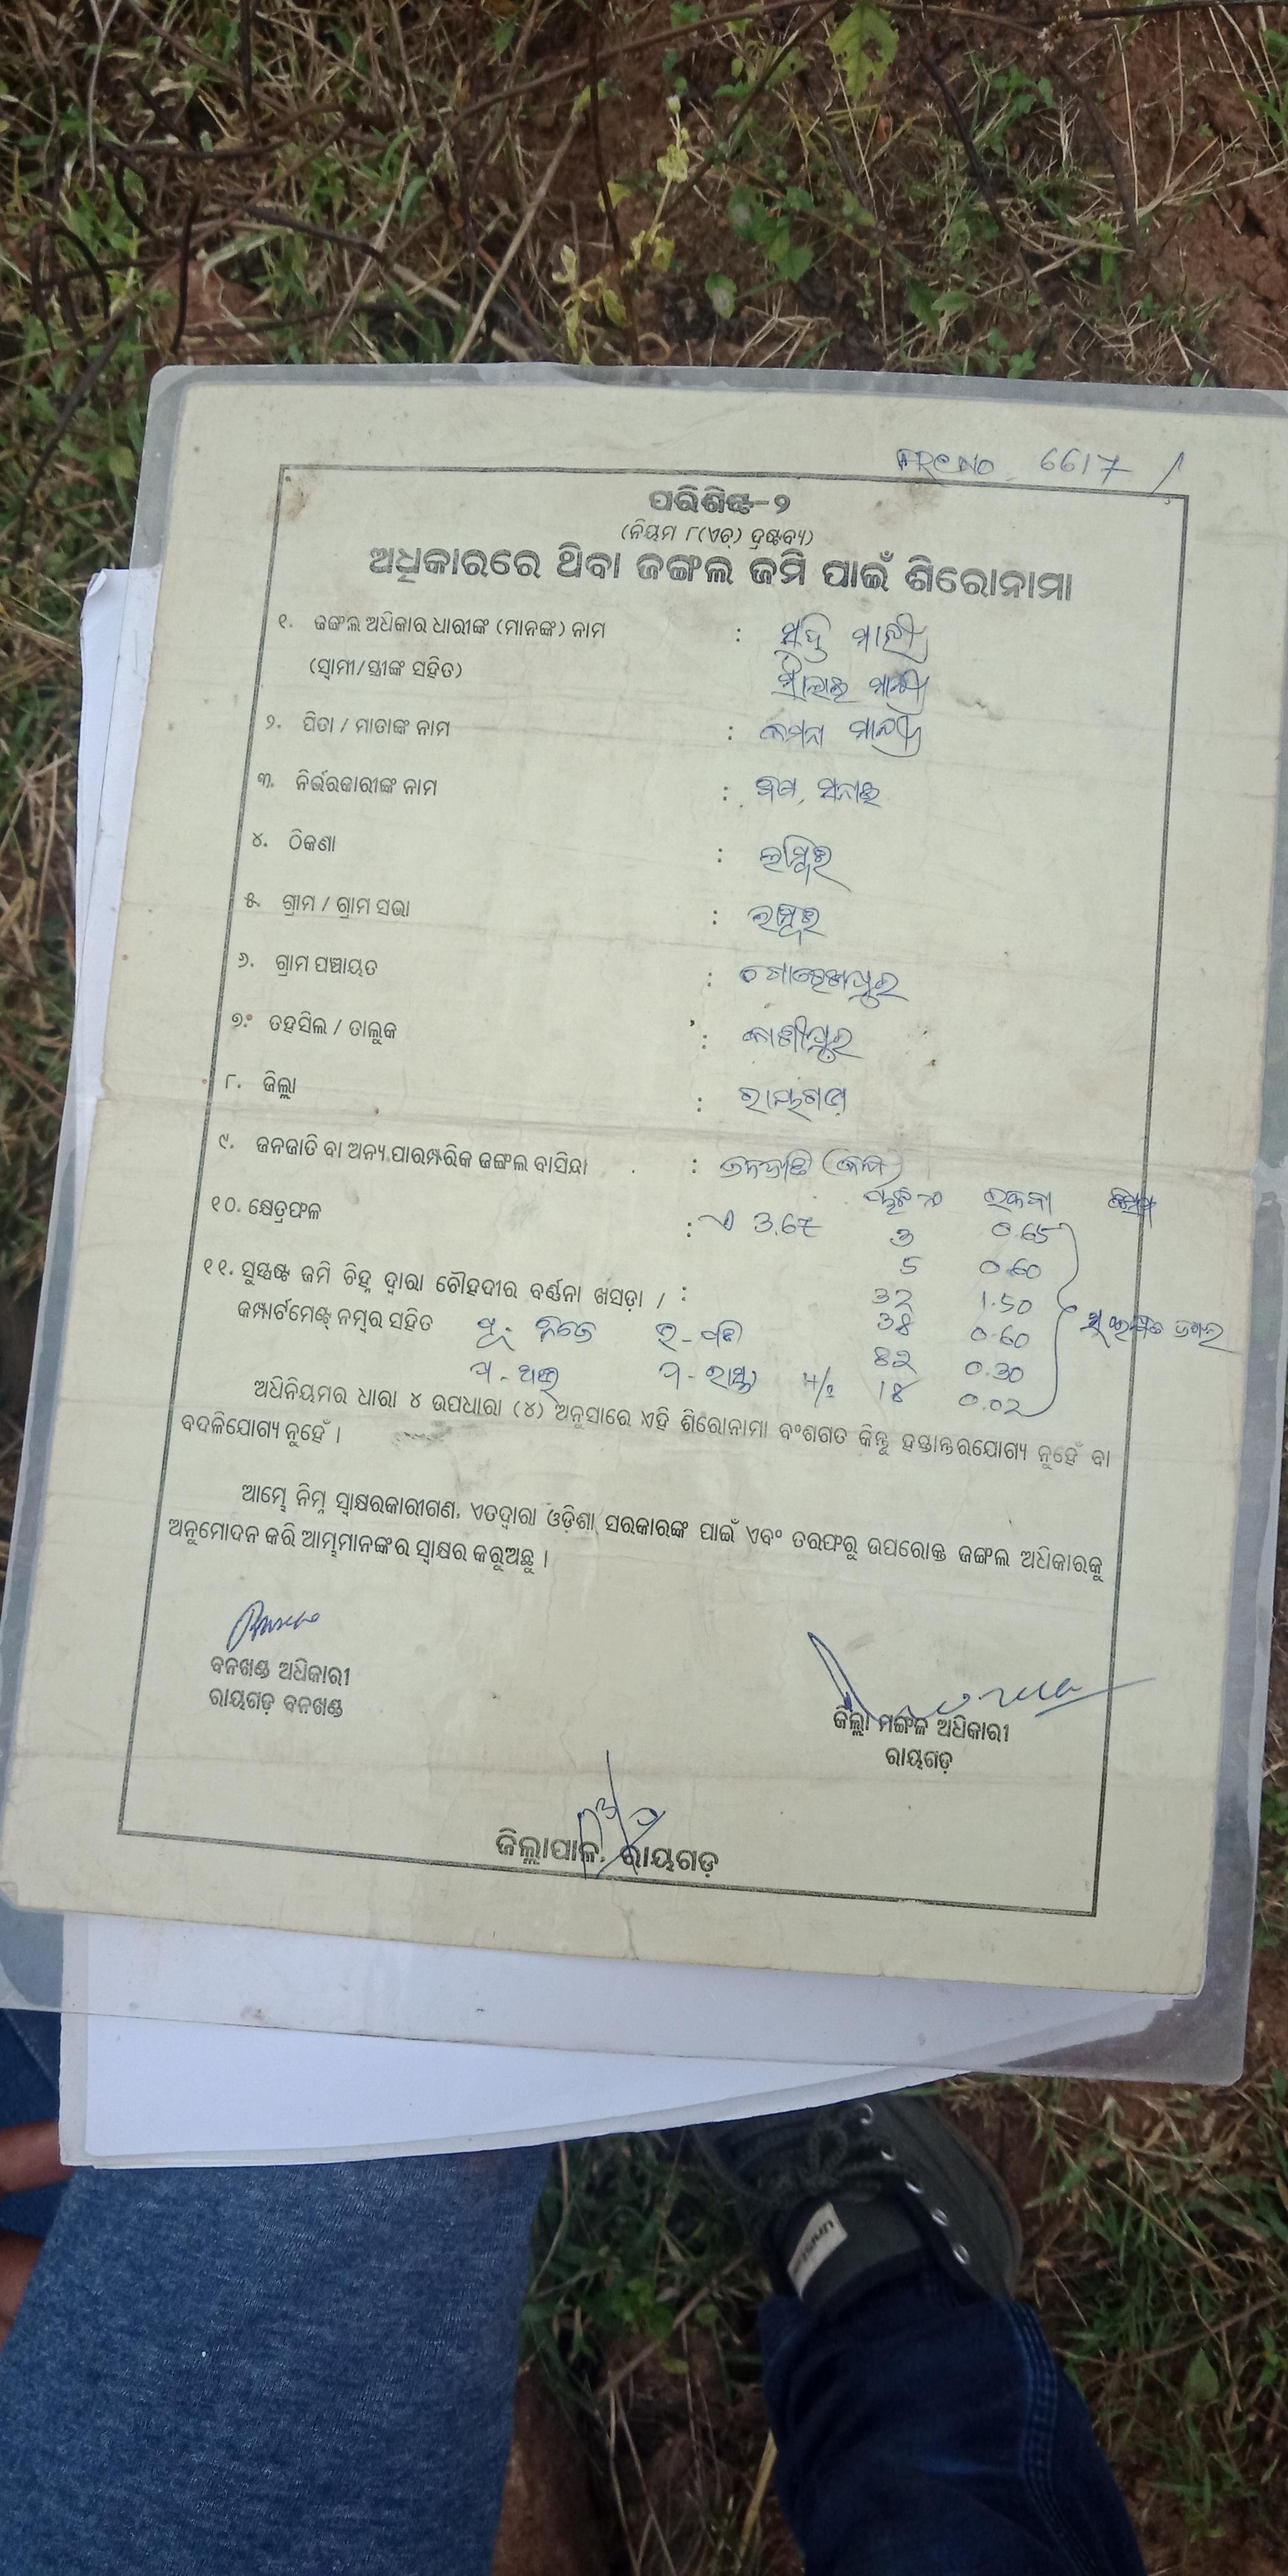 FRC NO 6617
ପରିଶିଷ୍ଟ-୨
(ନିୟମ ୮(ଏଚ୍) ଦ୍ରଷ୍ଟବ୍ୟ)
ଅଧିକାରରେ ଥିବା ଜଙ୍ଗଲ ଜମି ପାଇଁ ଶିରୋନାମା
୧. ଜଙ୍ଗଲ ଅଧିକାର ଧାରୀଙ୍କ (ମାନଙ୍କ) ନାମ :
(ସ୍ୱାମୀ/ସ୍ତ୍ରୀଙ୍କ ସହିତ)
୨. ପିତା / ମାତାଙ୍କ ନାମ :
୩. ନିର୍ଭରକାରୀଙ୍କ ନାମ :
୪. ଠିକଣା :
୫. ଗ୍ରାମ / ଗ୍ରାମ ସଭା :
୬. ଗ୍ରାମ ପଞ୍ଚାୟତ : ଗୋରଖପୁର
୭. ତହସିଲ / ତାଲୁକ : କାଶୀପୁର
୮. ଜିଲ୍ଲା : ରାୟଗଡ଼
୯. ଜନଜାତି ବା ଅନ୍ୟ ପାରମ୍ପରିକ ଜଙ୍ଗଲ ବାସିନ୍ଦା : ଜନଜାତି (କନ୍ଧ)
୧୦. କ୍ଷେତ୍ରଫଳ : ଏ 3.67 ପ୍ଲଟ ନଂ ରକବା କିସମ
3 0.65
5 0.60
୧୧. ସୁସ୍ପଷ୍ଟ ଜମି ଚିହ୍ନ ଦ୍ୱାରା ଚୌହଦୀର ବର୍ଣ୍ଣନା ଖସଡ଼ା / : 32 1.50
କମ୍ପାର୍ଟମେଣ୍ଟ୍ ନମ୍ବର ସହିତ 38 0.60
ପୂ- ନିଜେ ଉ- 82 0.30
ପ- ଦ- ରାସ୍ତା 18 0.02
ଅଧିନିୟମର ଧାରା ୪ ଉପଧାରା (୪) ଅନୁସାରେ ଏହି ଶିରୋନାମା ବଂଶଗତ କିନ୍ତୁ ହସ୍ତାନ୍ତରଯୋଗ୍ୟ ନୁହେଁ ବା
ବଦଳିଯୋଗ୍ୟ ନୁହେଁ ।
ଆମ୍ଭେ ନିମ୍ନ ସ୍ୱାକ୍ଷରକାରୀଗଣ, ଏତଦ୍ୱାରା ଓଡ଼ିଶା ସରକାରଙ୍କ ପାଇଁ ଏବଂ ତରଫରୁ ଉପରୋକ୍ତ ଜଙ୍ଗଲ ଅଧିକାରକୁ
ଅନୁମୋଦନ କରି ଆମ୍ଭମାନଙ୍କର ସ୍ୱାକ୍ଷର କରୁଅଛୁ ।
ବନଖଣ୍ଡ ଅଧିକାରୀ
ରାୟଗଡ଼ ବନଖଣ୍ଡ
ଜିଲ୍ଲା ମଙ୍ଗଳ ଅଧିକାରୀ
ରାୟଗଡ଼
ଜିଲ୍ଲାପାଳ, ରାୟଗଡ଼